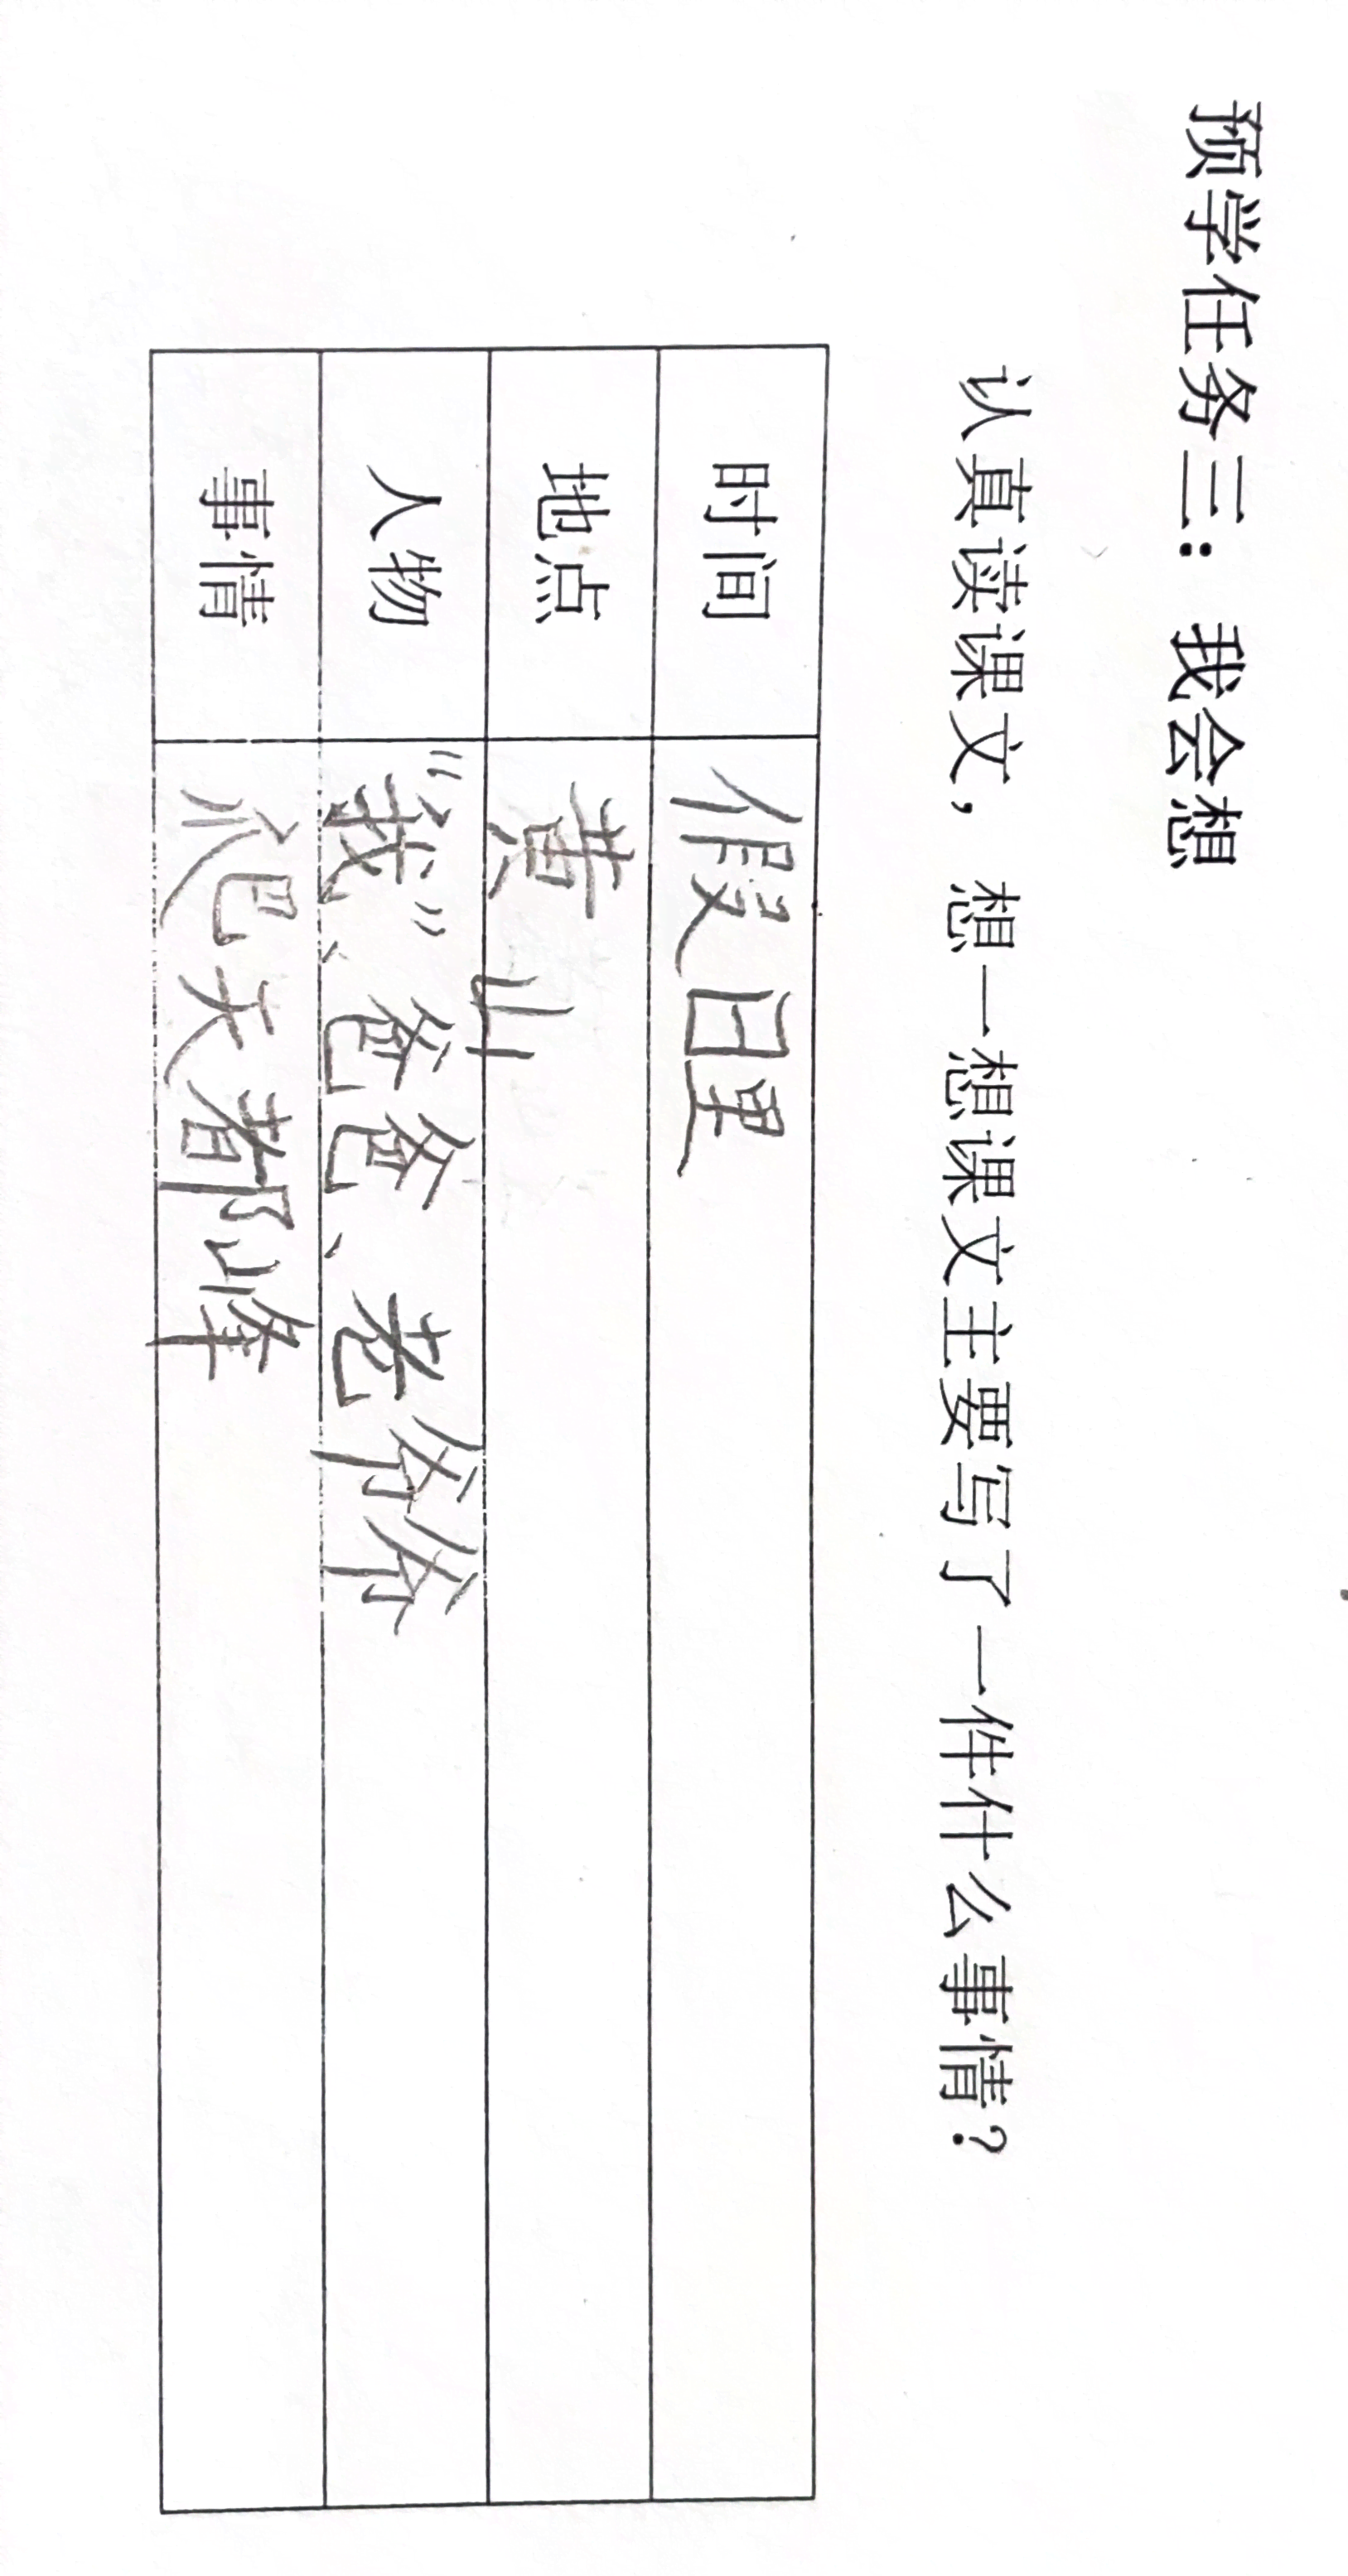 预学任务三：我会想
认真读课文，想一想课文主要写了一件什么事情？
时间 假日里
地点 黄山
人物 “我”、爸爸、老爷爷
事情 爬天都峰